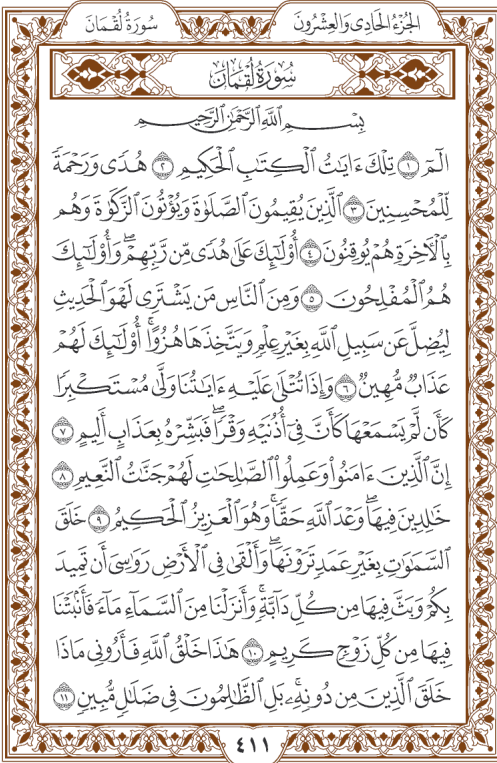 سُورَةُ لُقۡمَانَ
الجُزْءُ الحَادِي وَالعِشْرُونَ
سُورَةُ لُقۡمَانَ
بِسۡمِ ٱللَّهِ ٱلرَّحۡمَٰنِ ٱلرَّحِيمِ
الٓمٓ ١ تِلۡكَ ءَايَٰتُ ٱلۡكِتَٰبِ ٱلۡحَكِيمِ ٢ هُدٗى وَرَحۡمَةٗ
لِّلۡمُحۡسِنِينَ ٣ ٱلَّذِينَ يُقِيمُونَ ٱلصَّلَوٰةَ وَيُؤۡتُونَ ٱلزَّكَوٰةَ وَهُم
بِٱلۡأٓخِرَةِ هُمۡ يُوقِنُونَ ٤ أُوْلَٰٓئِكَ عَلَىٰ هُدٗى مِّن رَّبِّهِمۡۖ وَأُوْلَٰٓئِكَ
هُمُ ٱلۡمُفۡلِحُونَ ٥ وَمِنَ ٱلنَّاسِ مَن يَشۡتَرِي لَهۡوَ ٱلۡحَدِيثِ
لِيُضِلَّ عَن سَبِيلِ ٱللَّهِ بِغَيۡرِ عِلۡمٖ وَيَتَّخِذَهَا هُزُوًاۚ أُوْلَٰٓئِكَ لَهُمۡ
عَذَابٞ مُّهِينٞ ٦ وَإِذَا تُتۡلَىٰ عَلَيۡهِ ءَايَٰتُنَا وَلَّىٰ مُسۡتَكۡبِرٗا
كَأَن لَّمۡ يَسۡمَعۡهَا كَأَنَّ فِيٓ أُذُنَيۡهِ وَقۡرٗاۖ فَبَشِّرۡهُ بِعَذَابٍ أَلِيمٍ ٧
إِنَّ ٱلَّذِينَ ءَامَنُواْ وَعَمِلُواْ ٱلصَّٰلِحَٰتِ لَهُمۡ جَنَّٰتُ ٱلنَّعِيمِ ٨
خَٰلِدِينَ فِيهَاۖ وَعۡدَ ٱللَّهِ حَقّٗاۚ وَهُوَ ٱلۡعَزِيزُ ٱلۡحَكِيمُ ٩ خَلَقَ
ٱلسَّمَٰوَٰتِ بِغَيۡرِ عَمَدٖ تَرَوۡنَهَاۖ وَأَلۡقَىٰ فِي ٱلۡأَرۡضِ رَوَٰسِيَ أَن تَمِيدَ
بِكُمۡ وَبَثَّ فِيهَا مِن كُلِّ دَآبَّةٖۚ وَأَنزَلۡنَا مِنَ ٱلسَّمَآءِ مَآءٗ فَأَنۢبَتۡنَا
فِيهَا مِن كُلِّ زَوۡجٖ كَرِيمٍ ١٠ هَٰذَا خَلۡقُ ٱللَّهِ فَأَرُونِي مَاذَا
خَلَقَ ٱلَّذِينَ مِن دُونِهِۦۚ بَلِ ٱلظَّٰلِمُونَ فِي ضَلَٰلٖ مُّبِينٖ ١١
٤١١